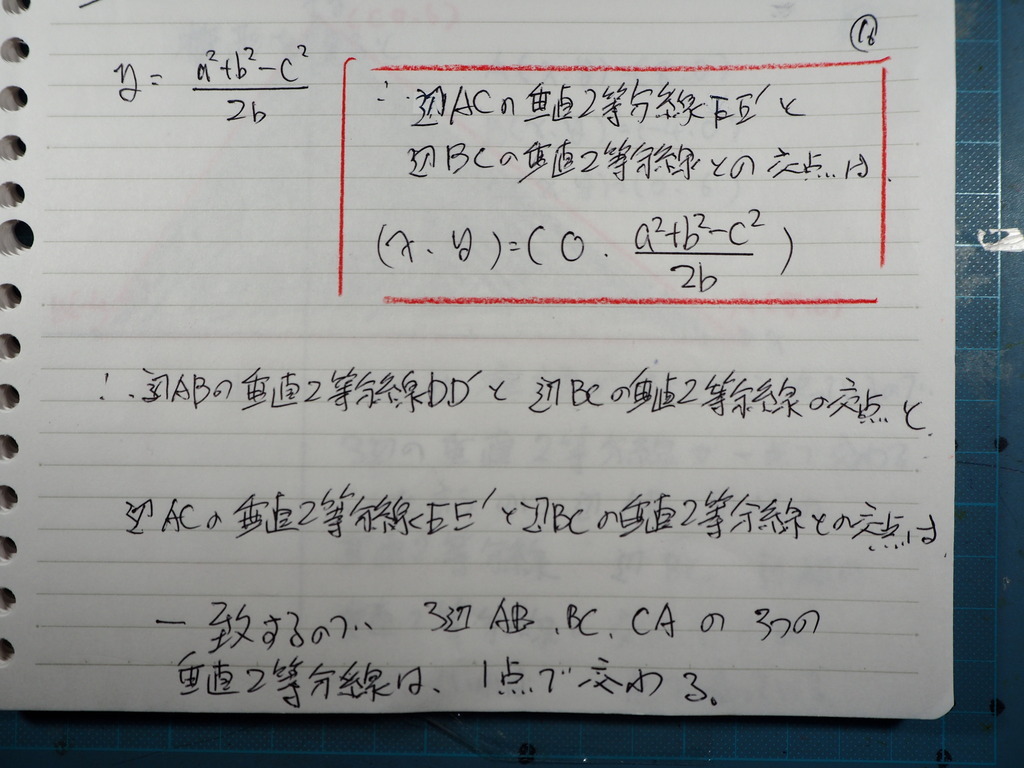 ⑯
y = (a²+b²-c²)/2b
∴ 辺ACの垂直2等分線EE′と
辺BCの垂直2等分線との交点は、
(x、y)=(0、(a²+b²-c²)/2b)
∴ 辺ABの垂直2等分線DD′と 辺BCの垂直2等分線の交点と、
辺ACの垂直2等分線EE′と辺BCの垂直2等分線との交点は、
一致するので、 3辺AB、BC、CAの3つの
垂直2等分線は、1点で交わる。